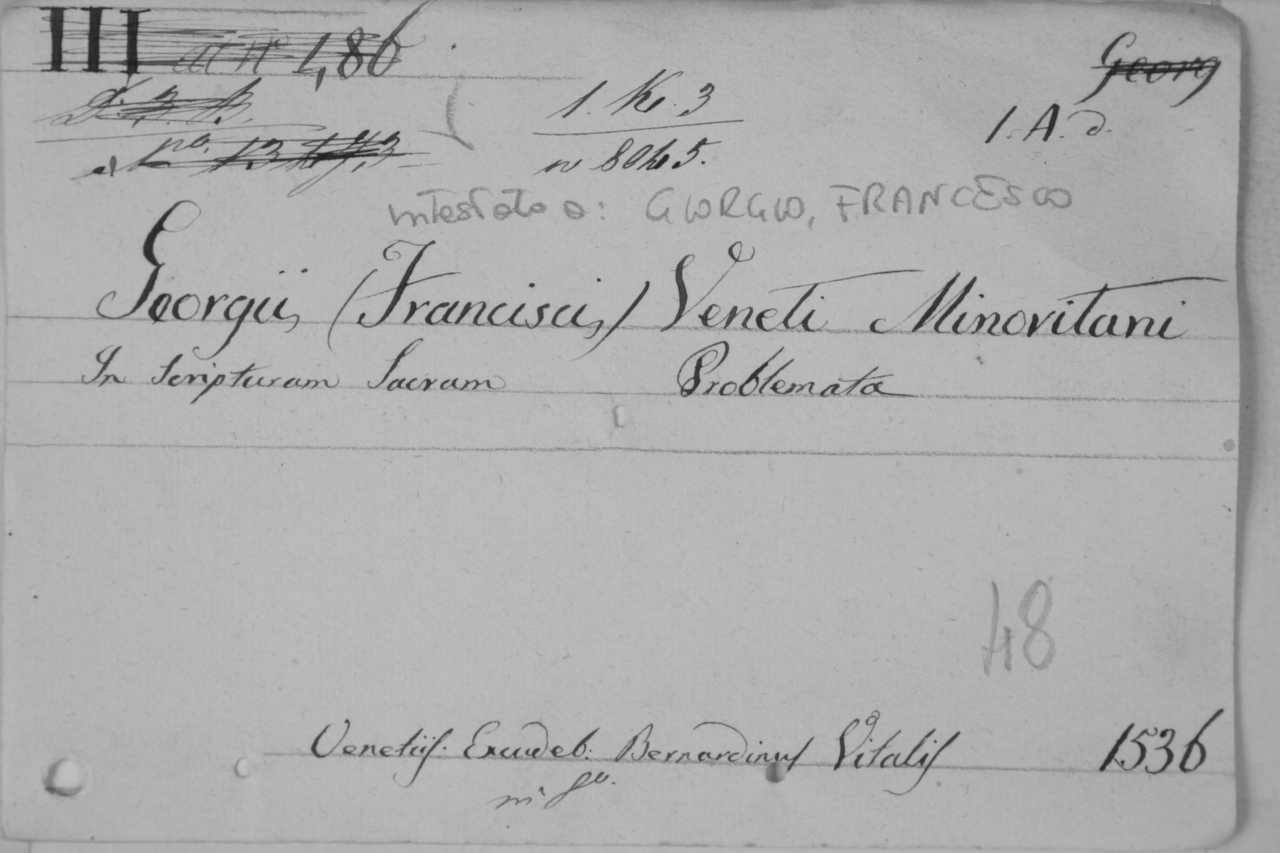 III 1,86
Georg
1. Ke. 3
1. A. d.
n 80
intestato a: GIORGIO, FRANCESCO
Georgii, (Francisci,) Veneti Minoritani
In Scripturam Sacram Problemata
48
Venetiis. Excudeb. Bernardinus Vitalis 1536
in fo.